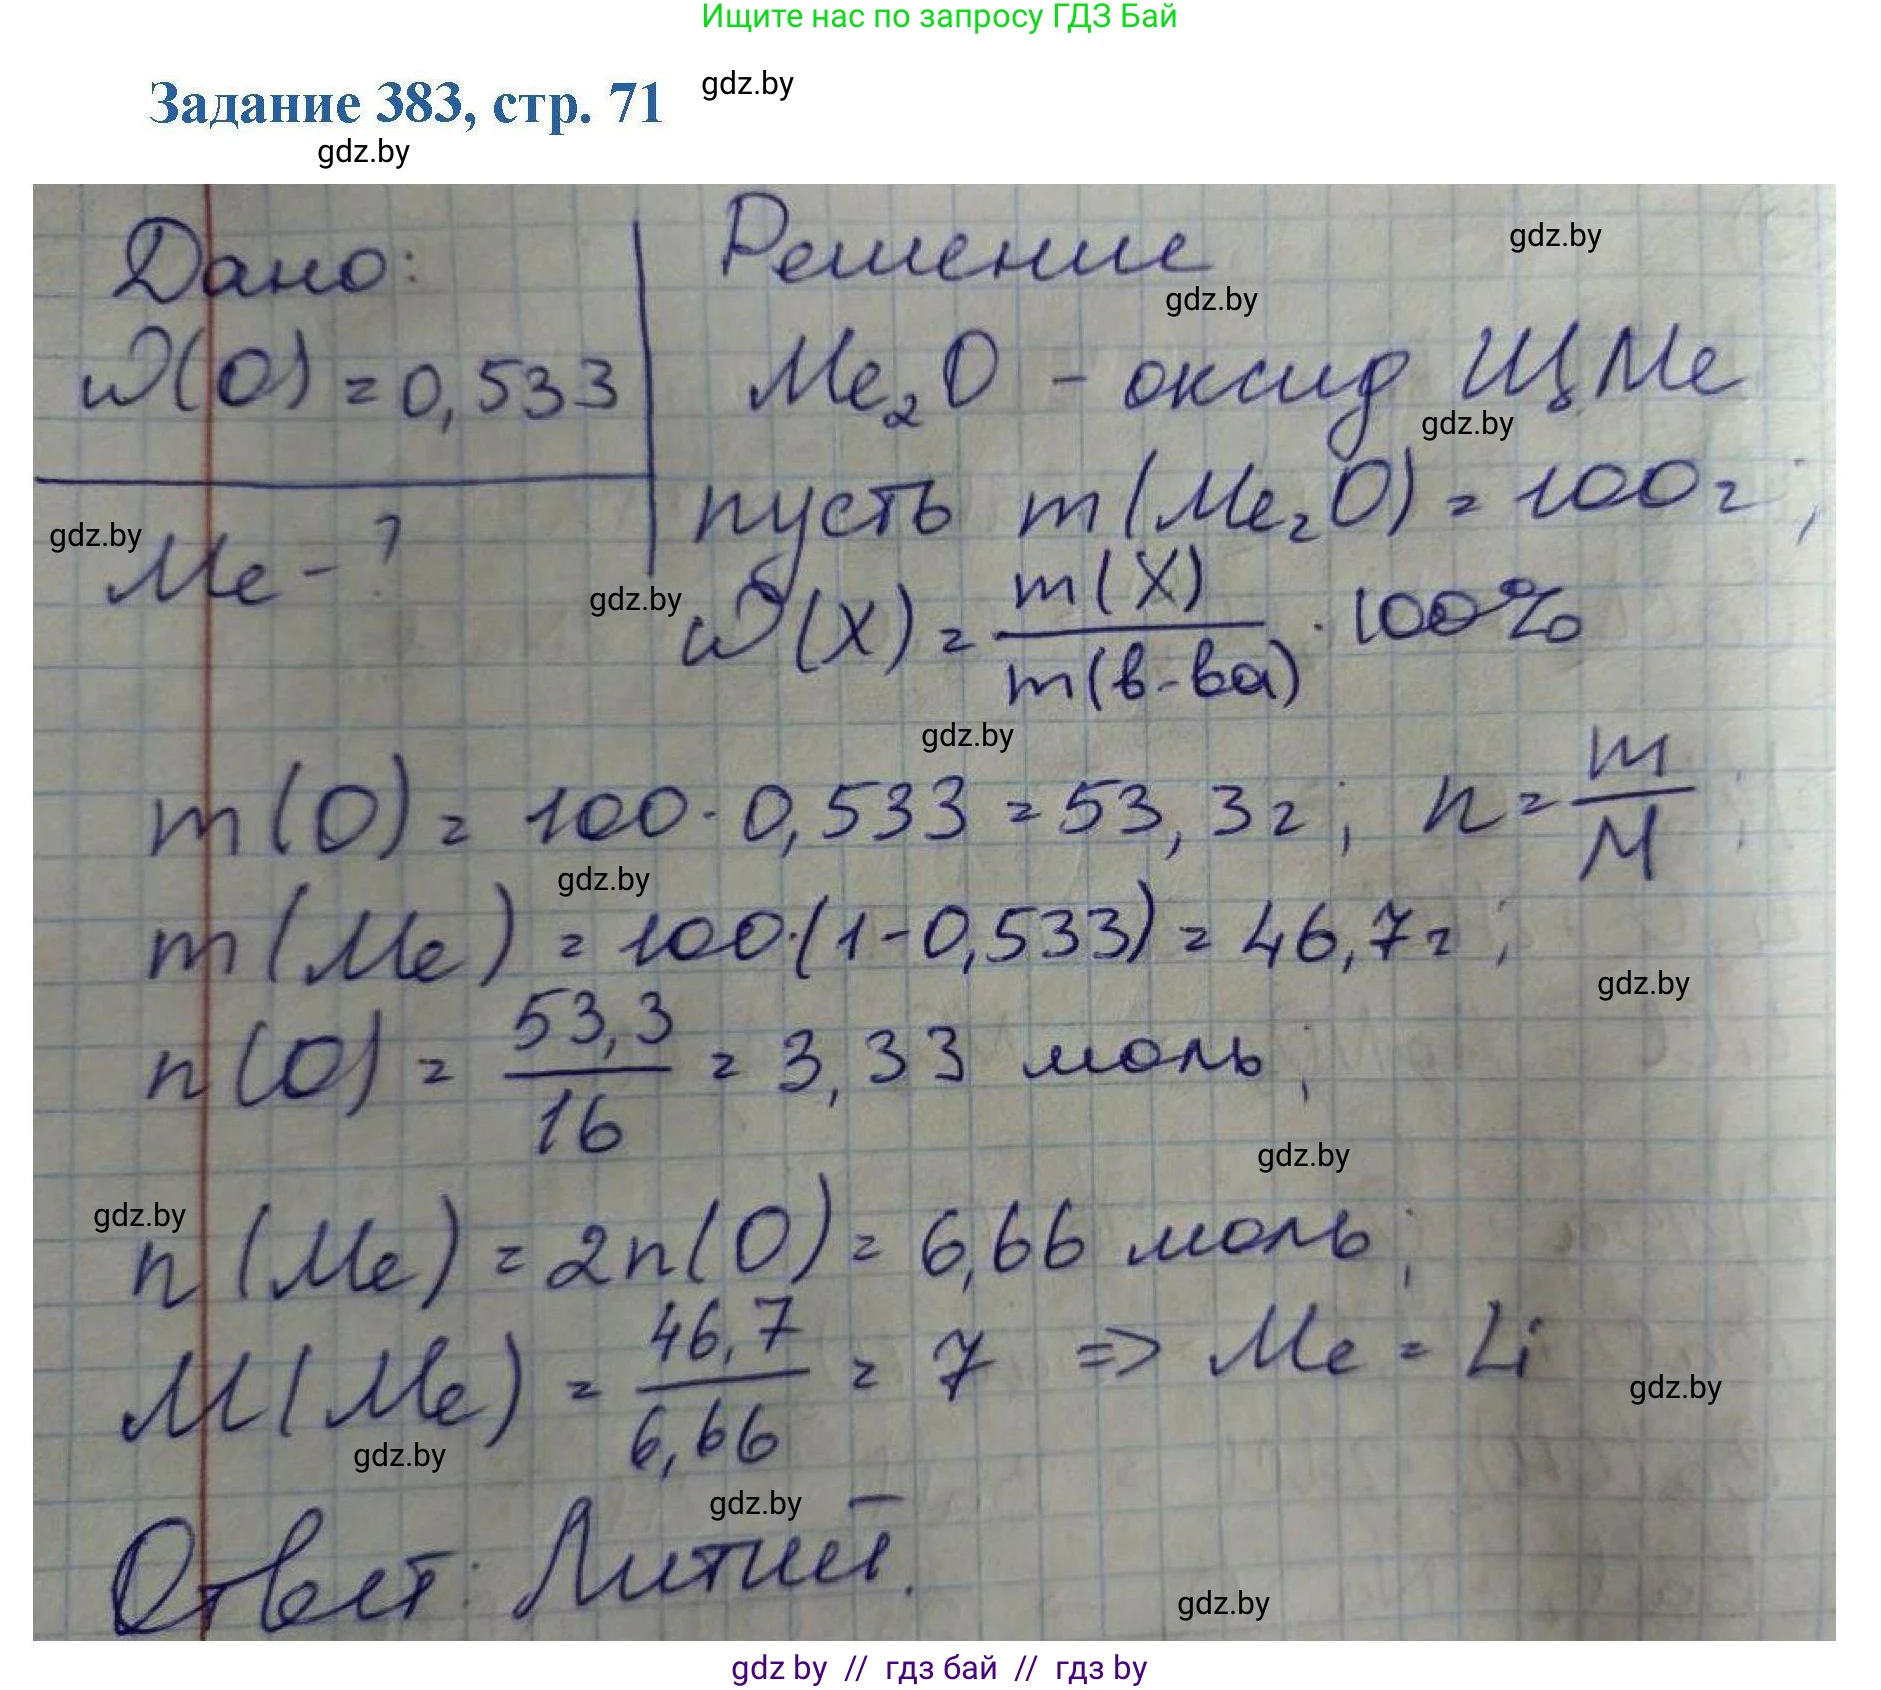 Ищите нас по запросу ГДЗ Бай
Задание 383, стр. 71
gdz.by
gdz.by
Дано:
Решение
gdz.by
gdz.by
ω(O) = 0,533
Me₂O - оксид ЩМе
gdz.by
пусть m(Me₂O) = 100г;
gdz.by
Me - ?
gdz.by
ω(X) = m(X) / m(в-ва) · 100%
gdz.by
m(O) = 100 · 0,533 = 53,3г; n = m / M;
gdz.by
m(Me) = 100·(1-0,533) = 46,7г;
gdz.by
n(O) = 53,3 / 16 = 3,33 моль;
gdz.by
gdz.by
n(Me) = 2n(O) = 6,66 моль;
M(Me) = 46,7 / 6,66 = 7 => Me = Li
gdz.by
gdz.by
gdz.by
Ответ: Литий.
gdz.by
gdz by // гдз бай // гдз by